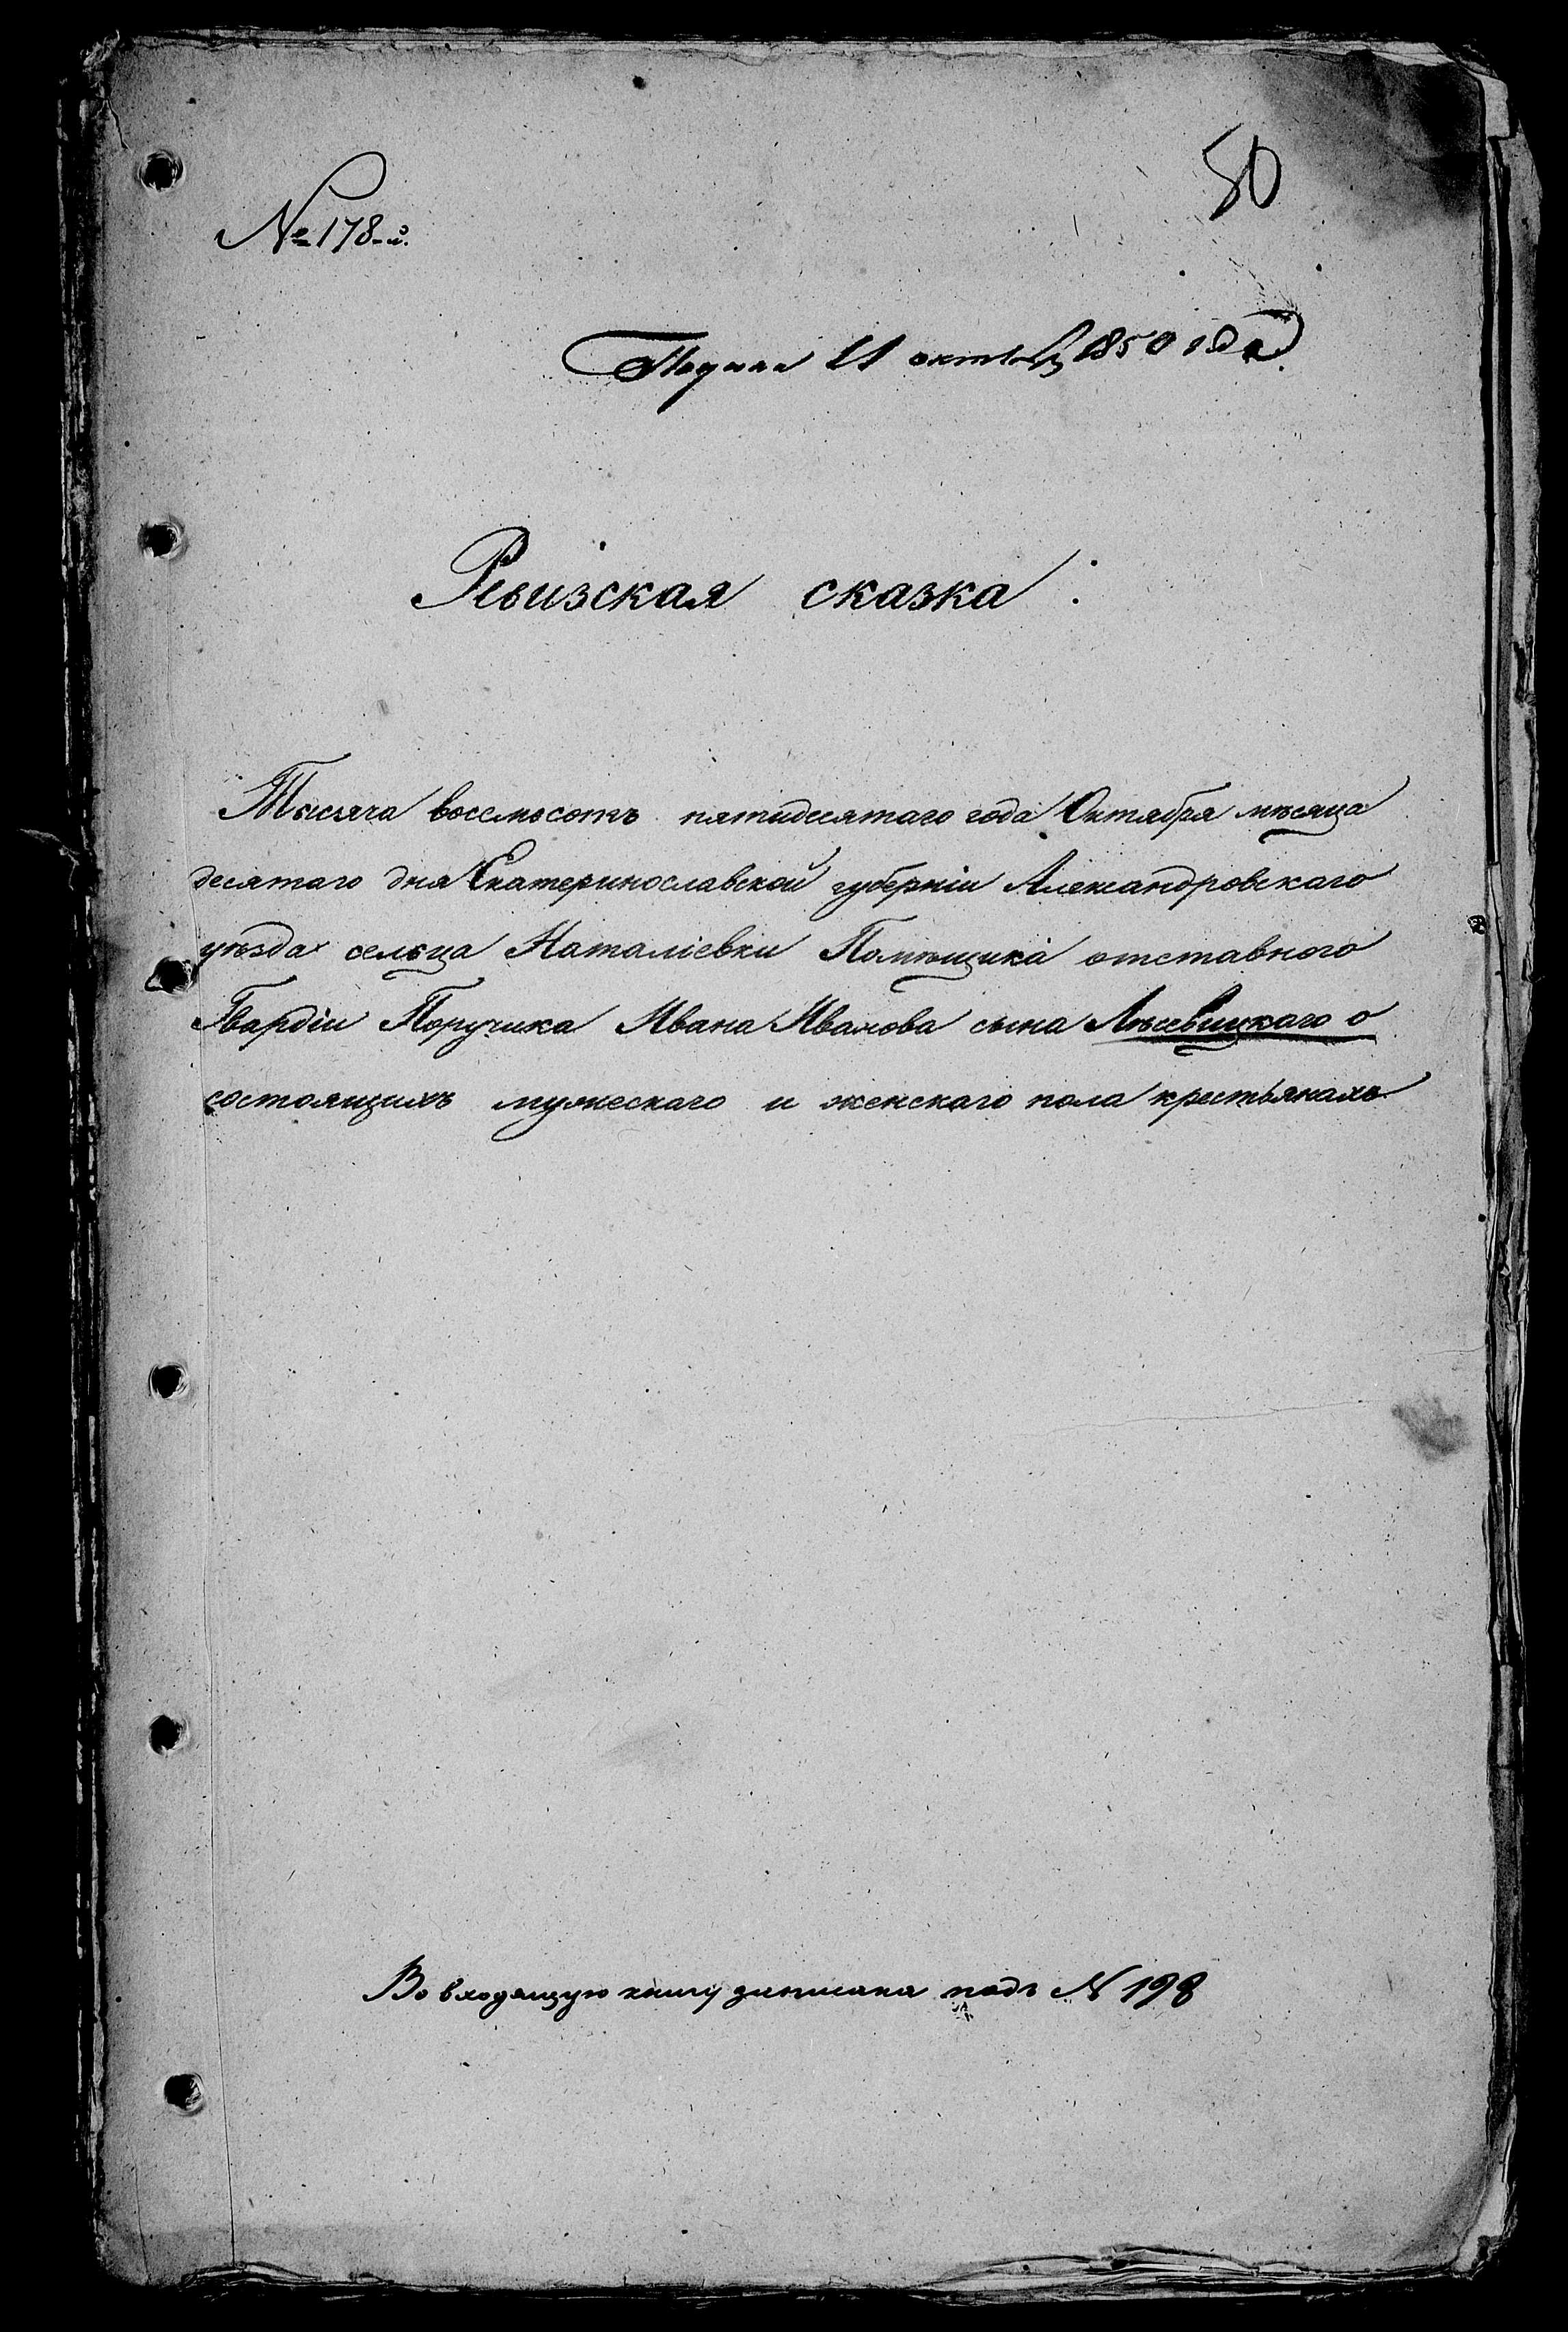 50
№ 178-й.
Подана 11 октября 1850 года
Ревизская сказка:
Тысяча восемьсотъ пятидесятаго года Октября мѣсяца
десятаго дня Екатеринославской губерніи Александровскаго
уѣзда сельца Наталіевки Помѣщика отставнаго
Гвардіи Поручика Ивана Иванова сына Лѣсевицкаго о
состоящихъ мужескаго и женскаго пола крестьянахъ
Во входящую книгу записана подъ N 198